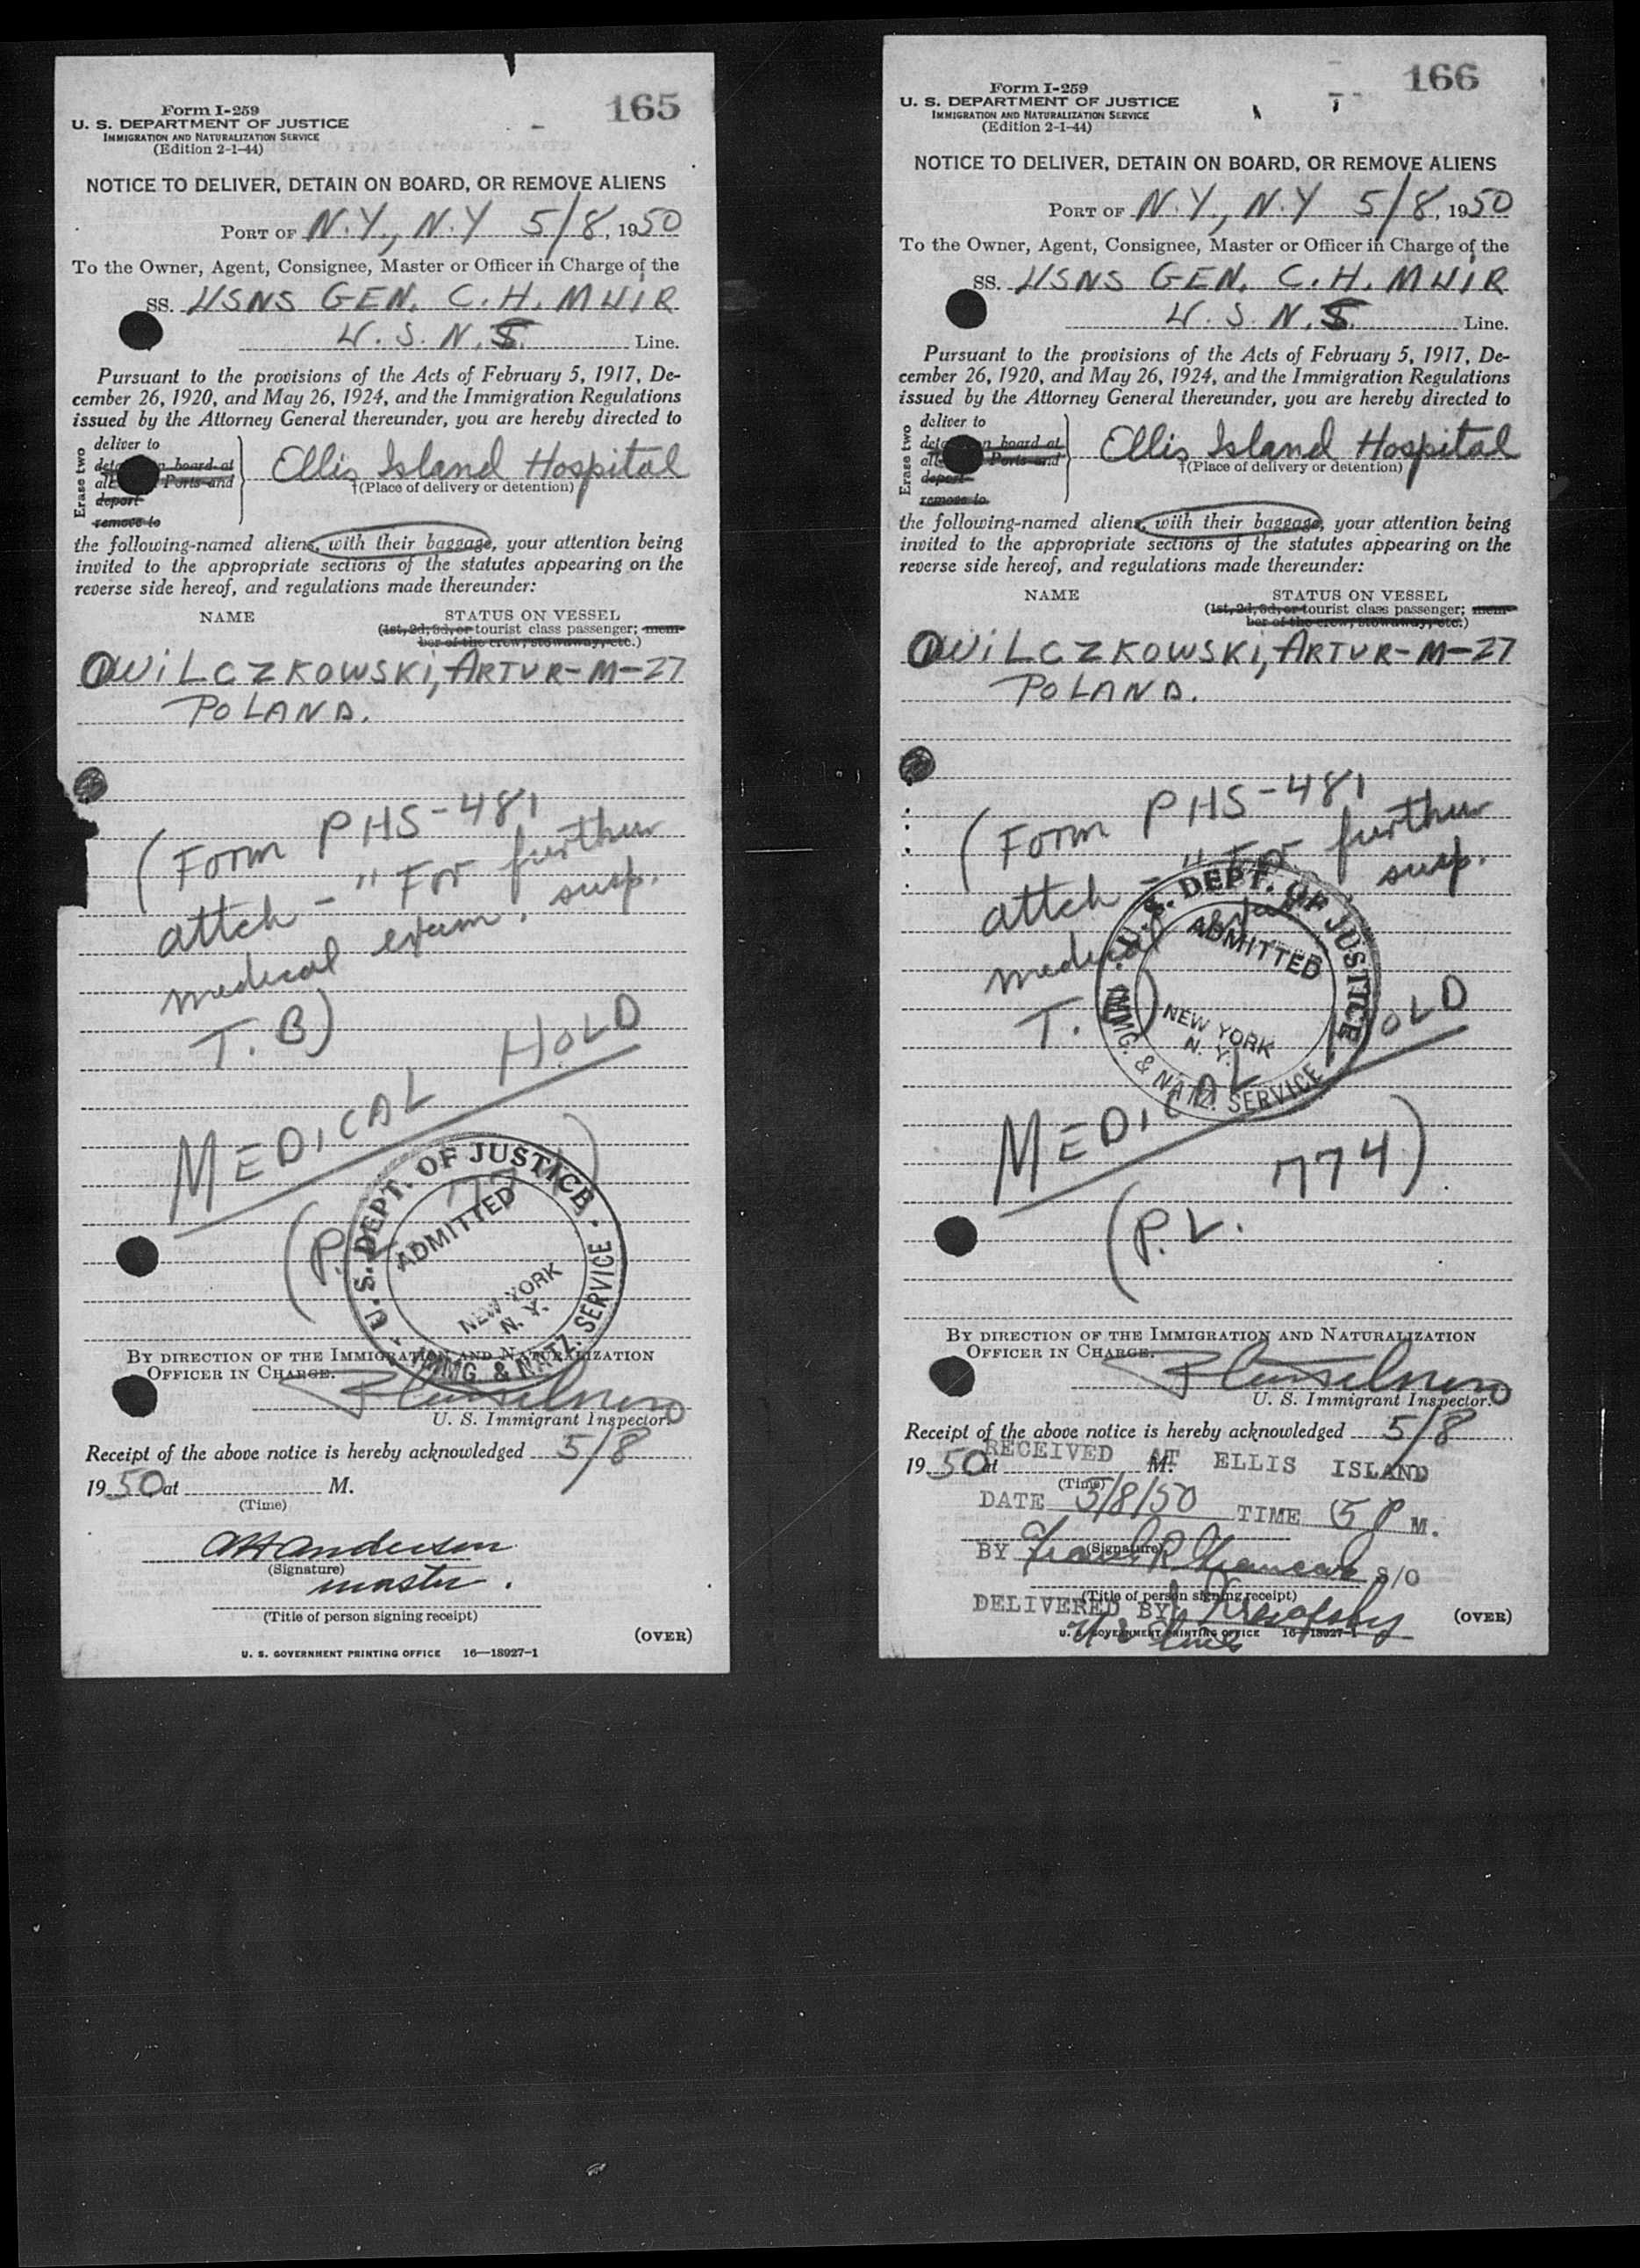 165
Form I-259
U. S. DEPARTMENT OF JUSTICE
IMMIGRATION AND NATURALIZATION SERVICE
(Edition 2-1-44)
NOTICE TO DELIVER, DETAIN ON BOARD, OR REMOVE ALIENS
PORT OF N.Y., N.Y 5/8, 1950
To the Owner, Agent, Consignee, Master or Officer in Charge of the
SS. USNS GEN. C. H. MUIR
U. S. N. S. Line.
Pursuant to the provisions of the Acts of February 5, 1917, De-
cember 26, 1920, and May 26, 1924, and the Immigration Regulations
issued by the Attorney General thereunder, you are hereby directed to
Erase two
deliver to
board at
Ports and
depart
remove to
Ellis Island Hospital
†(Place of delivery or detention)
the following-named aliens, with their baggage, your attention being
invited to the appropriate sections of the statutes appearing on the
reverse side hereof, and regulations made thereunder:
NAME STATUS ON VESSEL
(1st, 2d, 3d, or tourist class passenger; mem-
ber of the crew, stowaway, etc.)
① WILCZKOWSKI, ARTUR-M-27
POLAND.
(Form PHS-481
attch - " For further
medical exam. susp.
T. B)
MEDICAL HOLD
(P.
U. S. DEPT. OF JUSTICE
ADMITTED
NEW YORK
N. Y.
IMMG. & NATZ. SERVICE
BY DIRECTION OF THE IMMIGRATION AND NATURALIZATION
OFFICER IN CHARGE.
U. S. Immigrant Inspector.
Receipt of the above notice is hereby acknowledged 5/8
1950 at M.
(Time)
Anderson
(Signature)
master.
(Title of person signing receipt)
(OVER)
U. S. GOVERNMENT PRINTING OFFICE 16—18927-1
166
Form I-259
U. S. DEPARTMENT OF JUSTICE
IMMIGRATION AND NATURALIZATION SERVICE
(Edition 2-1-44)
NOTICE TO DELIVER, DETAIN ON BOARD, OR REMOVE ALIENS
PORT OF N.Y., N.Y 5/8, 1950
To the Owner, Agent, Consignee, Master or Officer in Charge of the
SS. USNS GEN. C. H. MUIR
U. S. N. S. Line.
Pursuant to the provisions of the Acts of February 5, 1917, De-
cember 26, 1920, and May 26, 1924, and the Immigration Regulations
issued by the Attorney General thereunder, you are hereby directed to
Erase two
deliver to
board at
Ports and
depart
remove to
Ellis Island Hospital
†(Place of delivery or detention)
the following-named aliens, with their baggage, your attention being
invited to the appropriate sections of the statutes appearing on the
reverse side hereof, and regulations made thereunder:
NAME STATUS ON VESSEL
(1st, 2d, 3d, or tourist class passenger; mem-
ber of the crew, stowaway, etc.)
① WILCZKOWSKI, ARTUR-M-27
POLAND.
(Form PHS-481
attch - " For further
medical exam susp.
T. B)
U. S. DEPT. OF JUSTICE
ADMITTED
NEW YORK
N. Y.
IMMG. & NATZ. SERVICE
MEDICAL HOLD
(P.L. 774)
BY DIRECTION OF THE IMMIGRATION AND NATURALIZATION
OFFICER IN CHARGE.
U. S. Immigrant Inspector.
Receipt of the above notice is hereby acknowledged 5/8
RECEIVED AT ELLIS ISLAND
1950 at M.
(Time)
DATE 5/8/50 TIME 5 P M.
(Signature)
BY S/O
(Title of person signing receipt)
DELIVERED BY
(OVER)
U. S. GOVERNMENT PRINTING OFFICE 16—18927-1